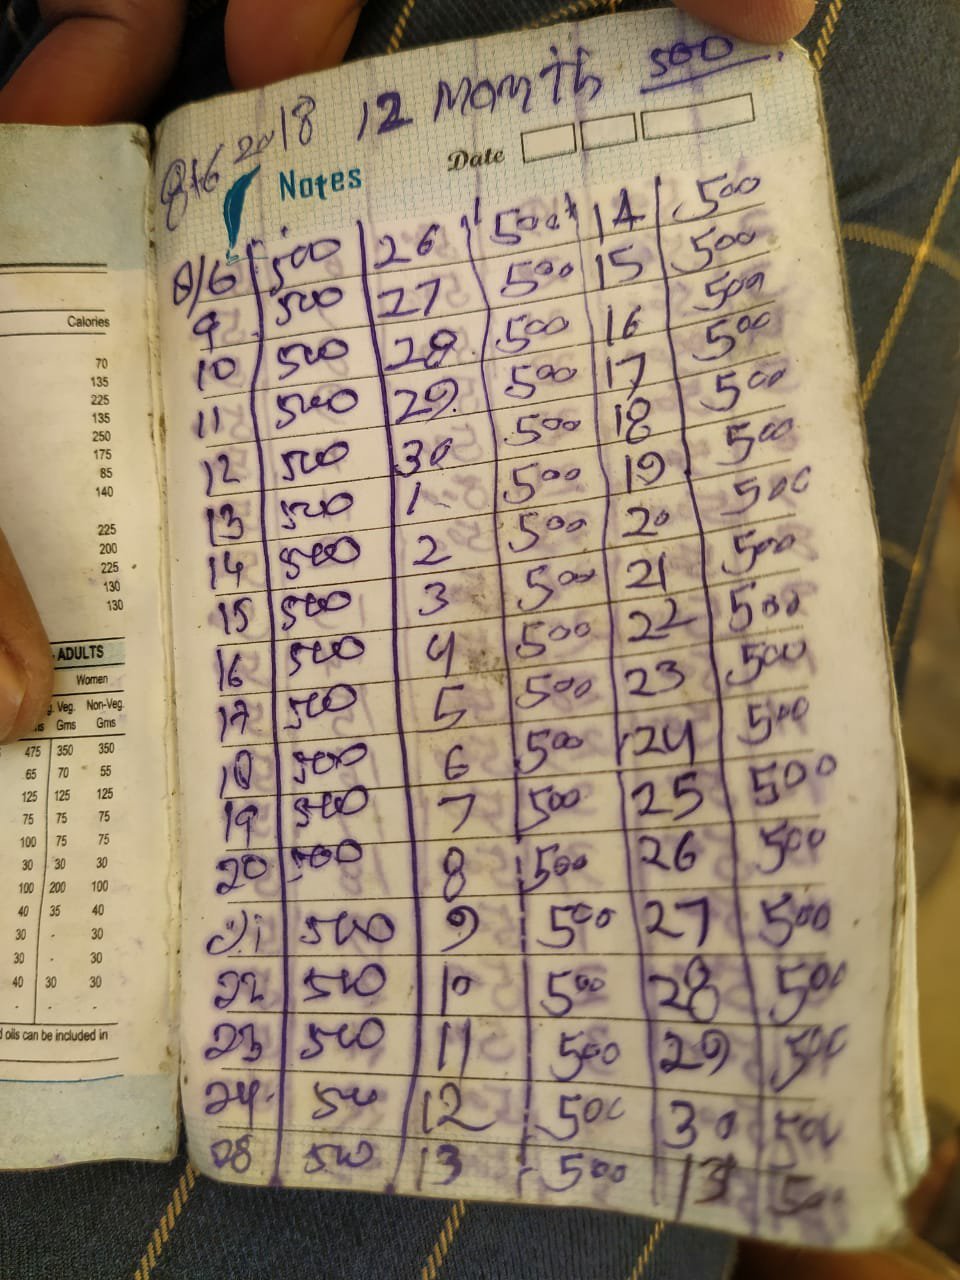 8/6 2018 12 Month 500
Notes Date
8/6 500 26 500 14 500
9 500 27 500 15 500
10 500 28 500 16 500
11 500 29 500 17 500
12 500 30 500 18 500
13 500 1 500 19 500
14 500 2 500 20 500
15 500 3 500 21 500
16 500 4 500 22 500
17 500 5 500 23 500
18 500 6 500 24 500
19 500 7 500 25 500
20 500 8 500 26 500
21 500 9 500 27 500
22 500 10 500 28 500
23 500 11 500 29 500
24 500 12 500 30 500
500 13 500 500
Calories
70
135
225
135
250
175
85
140
225
200
225
130
130
ADULTS
Women
Veg. Non-Veg.
Gms Gms
475 350 350
65 70 55
125 125 125
75 75 75
100 75 75
30 30 30
100 200 100
40 35 40
30 - 30
30 - 30
40 30 30
- -
oils can be included in